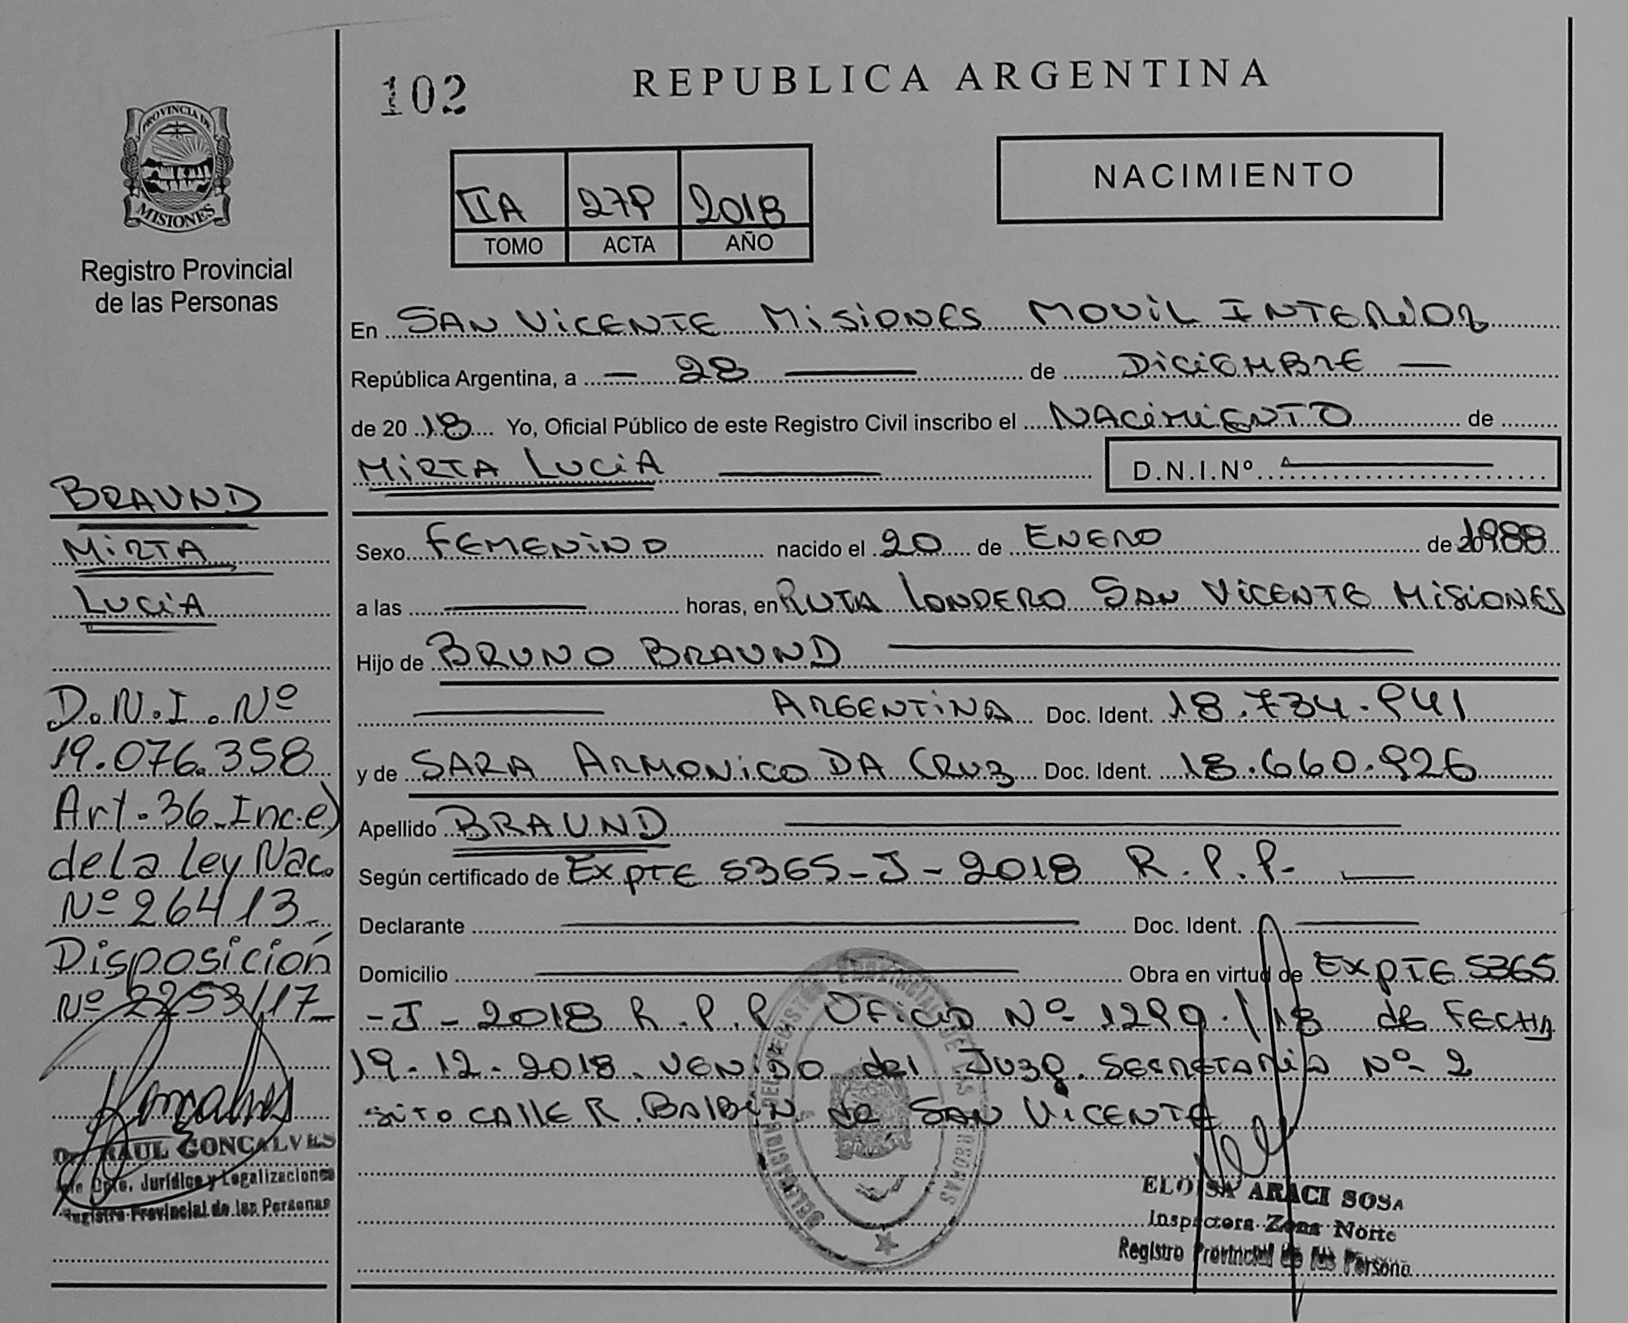 102
REPUBLICA ARGENTINA
PROVINCIA DE
MISIONES
Registro Provincial
de las Personas
IIA 279 2018
TOMO ACTA AÑO
NACIMIENTO
En SAN VICENTE MISIONES MOVIL INTERIOR
República Argentina, a — 28 — de DICIEMBRE —
de 2018 Yo, Oficial Público de este Registro Civil inscribo el NACIMIENTO de
MIRTA LUCIA — D.N.I.Nº —
Sexo FEMENINO nacido el 20 de ENERO de 1988
a las — horas, en RUTA LONDERO SAN VICENTE MISIONES
Hijo de BRUNO BRAUND —
— ARGENTINA Doc. Ident. 18.734.941
y de SARA ARMONICO DA CRUZ Doc. Ident. 18.660.926
Apellido BRAUND —
Según certificado de EXPTE 5365-J-2018 R.P.P. —
Declarante — Doc. Ident. —
Domicilio — Obra en virtud de EXPTE 5365
-J-2018 R.P.P. OFICIO Nº 1299/18 de FECHA
19-12-2018. VENIDO del JUZG. SECRETARIA Nº 2
SITO CALLE R. BALBIN de SAN VICENTE
ELOISA ARACI SOSA
Inspectora Zona Norte
Registro Provincial de las Persona
BRAUND
MIRTA
LUCIA
D.N.I. Nº
19.076.358
Art. 36 Inc. e)
de la Ley Nac.
Nº 26413-
Disposición
Nº 2253/17-
RAUL GONCALVES
Dpto. Jurídico y Legalizaciones
Registro Provincial de las Personas